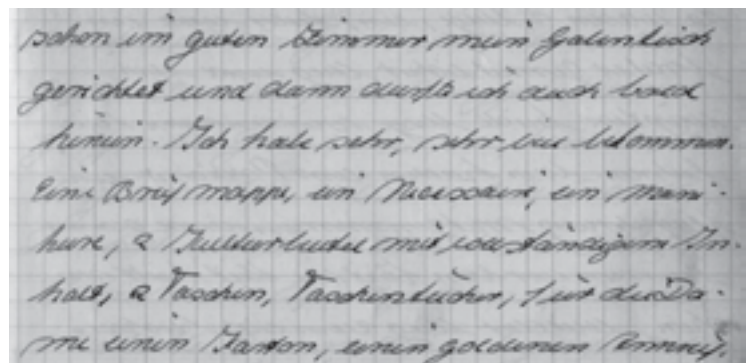 schon im guten Zimmer mein Gabentisch
gerichtet und dann durfte ich auch bald
hinein. Ich habe sehr, sehr viel bekommen.
Eine Briefmappe, ein Necessaire, ein Mani-
küre, 2 Kulturbeutel mit vollständigem In-
halt, 2 Taschen, Taschentücher, für die Da-
me einen Karton, einen goldenen